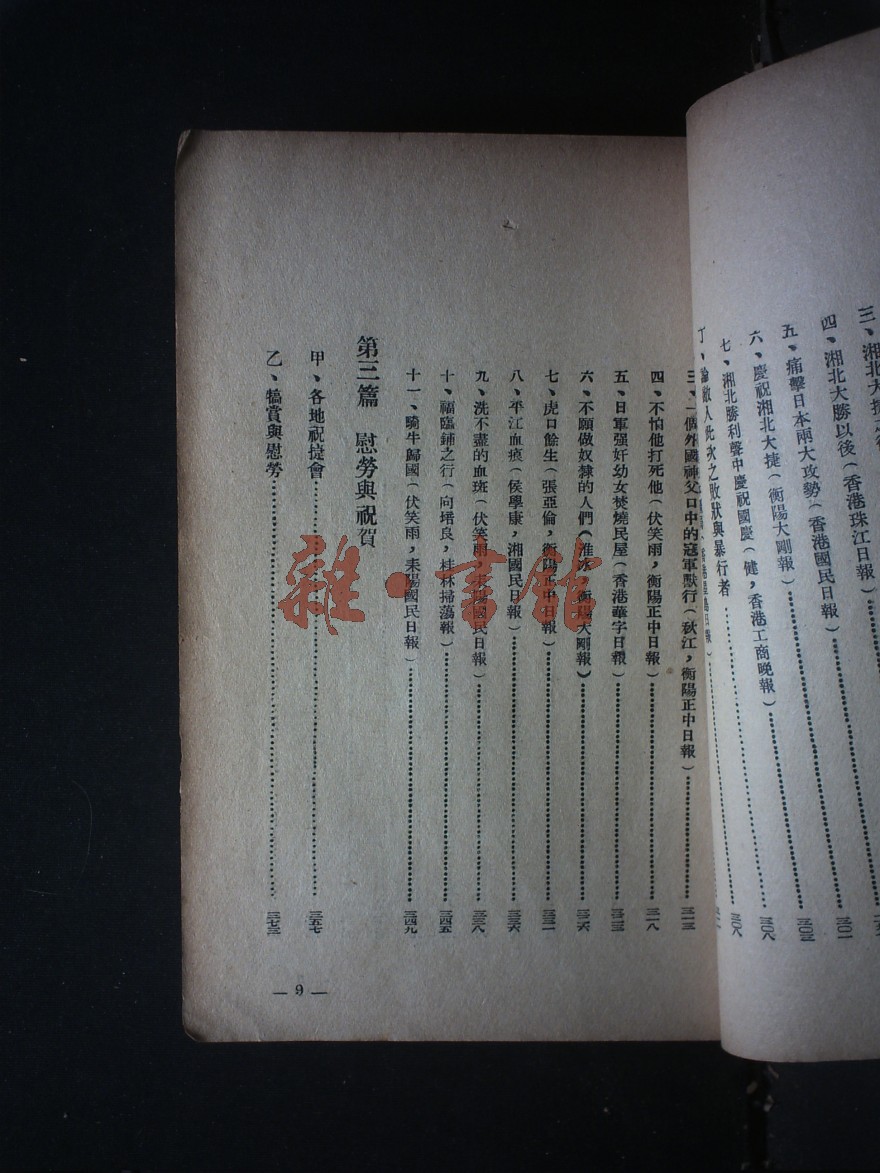 三、湘北大捷之後（香港珠江日報
四、湘北大勝以後（香港珠江日報）……三〇一
五、痛擊日本兩大攻勢（香港國民日報）……三〇三
六、慶祝湘北大捷（衡陽大剛報）……三〇六
七、湘北勝利聲中慶祝國慶（健，香港工商晚報）……三〇八
丁、論敵人此次之敗狀與暴行者……
三、一個外國神父口中的寇軍獸行（秋江，衡陽正中日報）……三一三
四、不怕他打死他（伏笑雨，衡陽正中日報）……三一八
五、日軍强奸幼女焚燒民屋（香港華字日報）……三二三
六、不願做奴隸的人們（淮冰，衡陽大剛報）……三二六
七、虎口餘生（張亞倫，衡陽正中日報）……三三一
八、平江血痕（侯學康，湘國民日報）……三三六
九、洗不盡的血斑（伏笑雨，耒陽國民日報）……三三八
十、福臨鋪之行（向培良，桂林掃蕩報）……三四五
十一、騎牛歸國（伏笑雨，耒陽國民日報）……三四九
第三篇　慰勞與祝賀
甲、各地祝捷會……三五七
乙、犒賞與慰勞……三七三
— 9 —
雜·書館